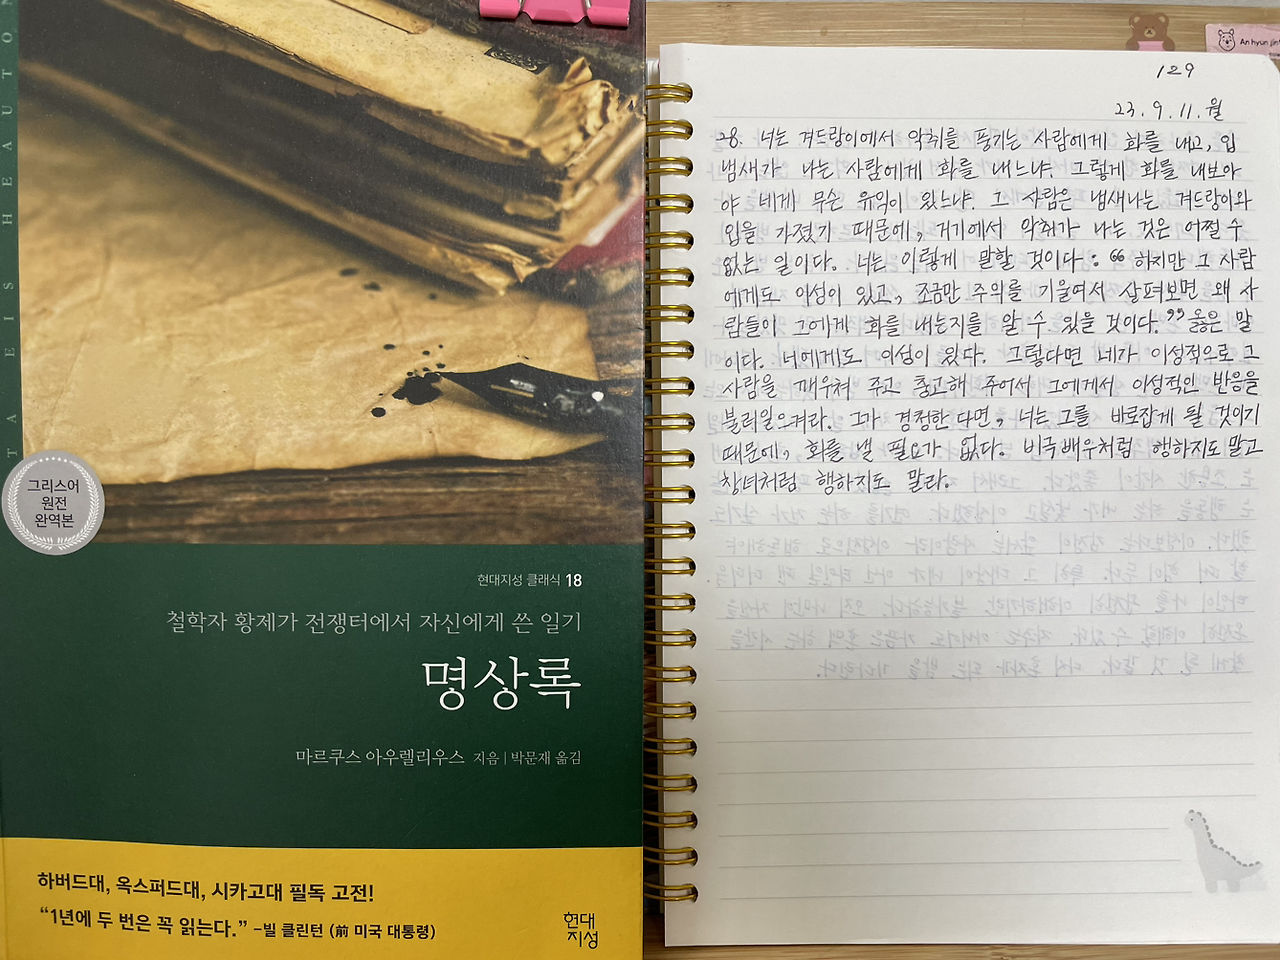 TA EIS HEAUTON
그리스어
원전
완역본
현대지성 클래식 18
철학자 황제가 전쟁터에서 자신에게 쓴 일기
명상록
마르쿠스 아우렐리우스 지음 | 박문재 옮김
하버드대, 옥스퍼드대, 시카고대 필독 고전!
“1년에 두 번은 꼭 읽는다.” –빌 클린턴 (前 미국 대통령)
현대
지성
An hyun jin
129
23. 9. 11. 월
28. 너는 겨드랑이에서 악취를 풍기는 사람에게 화를 내고, 입
냄새가 나는 사람에게 화를 내느냐. 그렇게 화를 내보아
야 네게 무슨 유익이 있느냐. 그 사람은 냄새나는 겨드랑이와
입을 가졌기 때문에, 거기에서 악취가 나는 것은 어쩔 수
없는 일이다. 너는 이렇게 말할 것이다 : “하지만 그 사람
에게도 이성이 있고, 조금만 주의를 기울여서 살펴보면 왜 사
람들이 그에게 화를 내는지를 알 수 있을 것이다.” 옳은 말
이다. 너에게도 이성이 있다. 그렇다면 네가 이성적으로 그
사람을 깨우쳐 주고 충고해 주어서 그에게서 이성적인 반응을
불러일으켜라. 그가 경청한다면, 너는 그를 바로잡게 될 것이기
때문에, 화를 낼 필요가 없다. 비극배우처럼 행하지도 말고
창녀처럼 행하지도 말라.